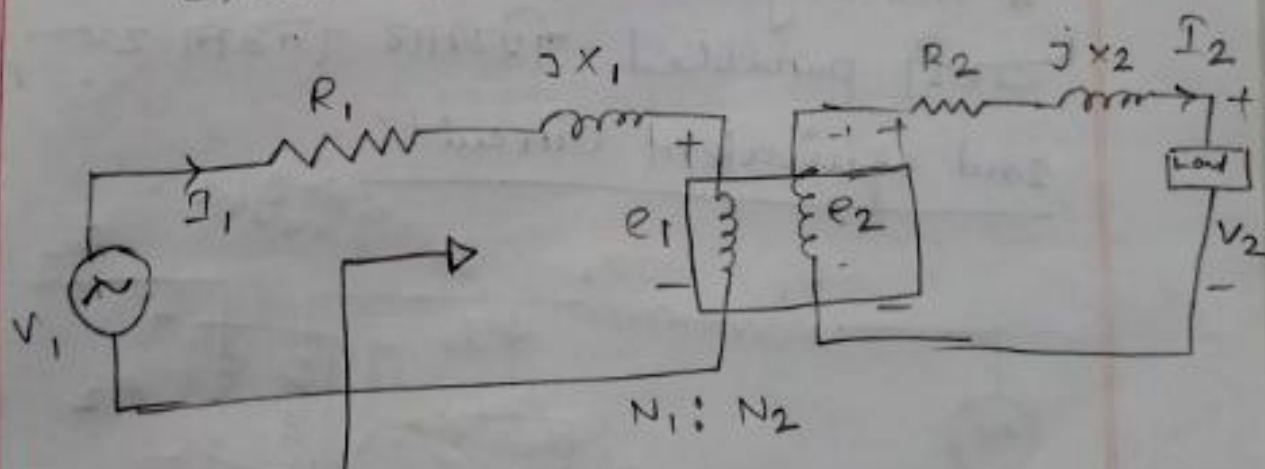 R₁ jX₁ R₂ jX₂ I₂
I₁ + - + +
e₁ e₂ Load
V₁ - - - V₂ -
N₁ : N₂